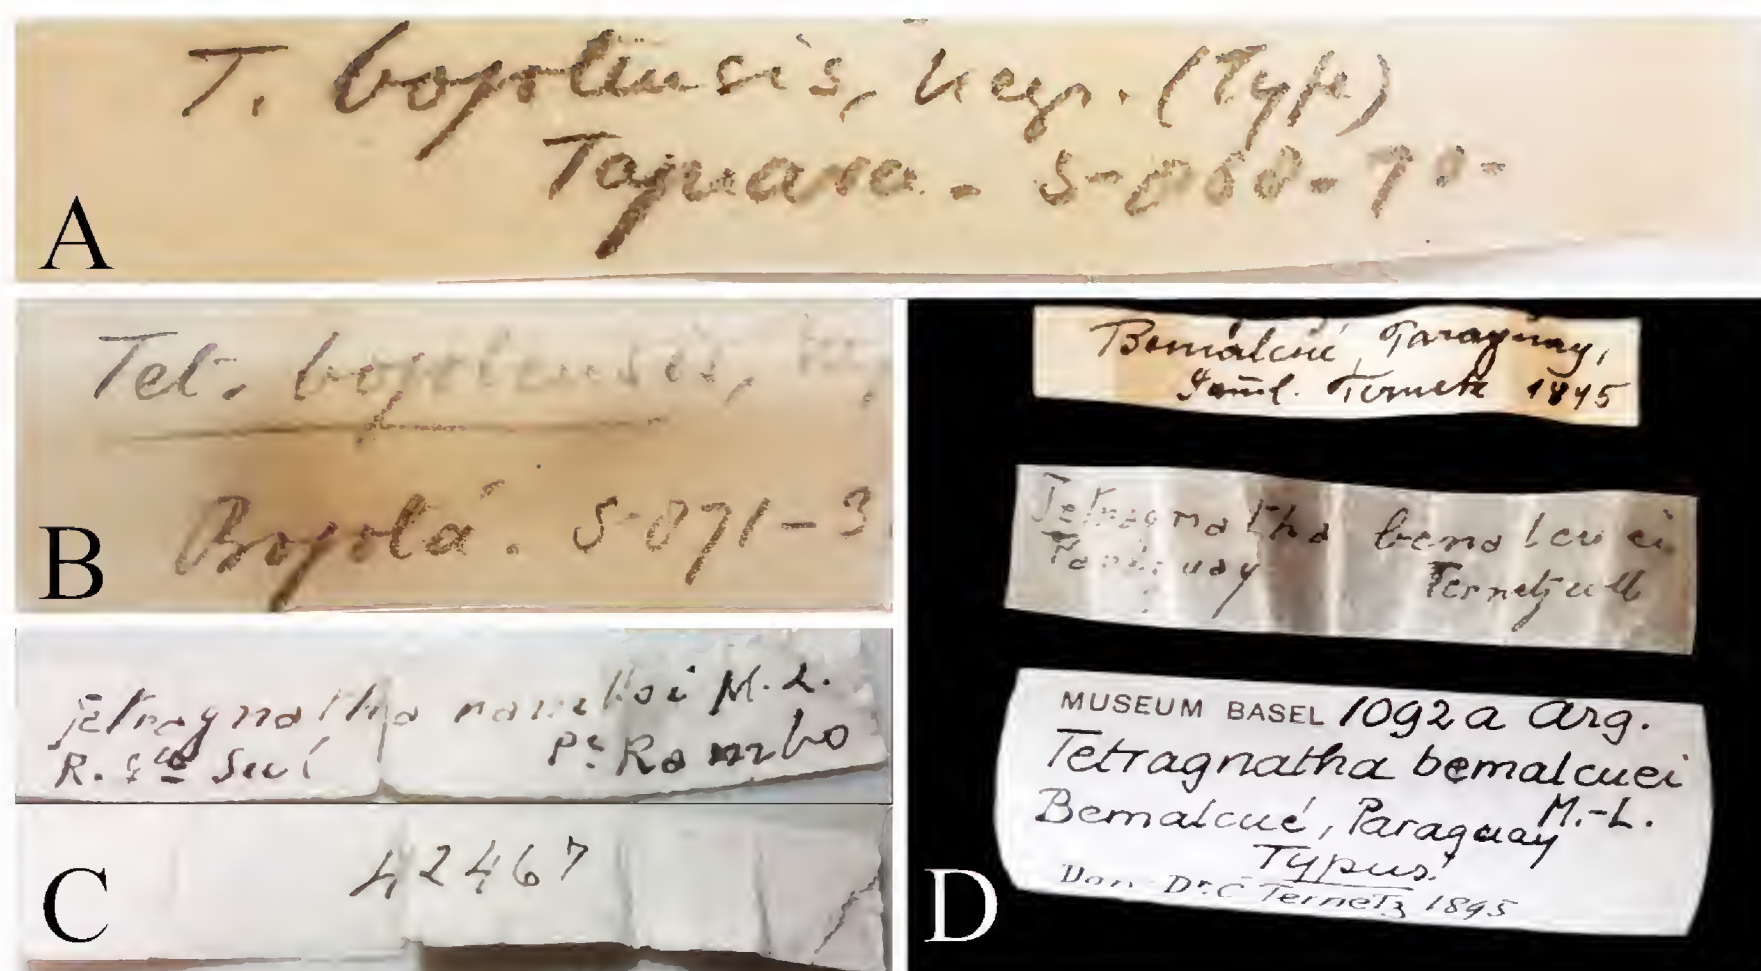 T. bogotensis, Keys. (Type)
Taquara. 5-068-70-
A
Tet. bogotensis,
Bogotá. 5-071-3
B
Tetragnatha ramboi M.L.
R. Gde Sul Pe Rambo
42467
C
Bemalcué, Paraguay,
Ternetz 1895
Tetragnatha bemalcuei
Paraguay Ternetz
MUSEUM BASEL 1092a Arg.
Tetragnatha bemalcuei
M.-L.
Bemalcué, Paraguay
Typus!
Don. Dr. C Ternetz 1895
D